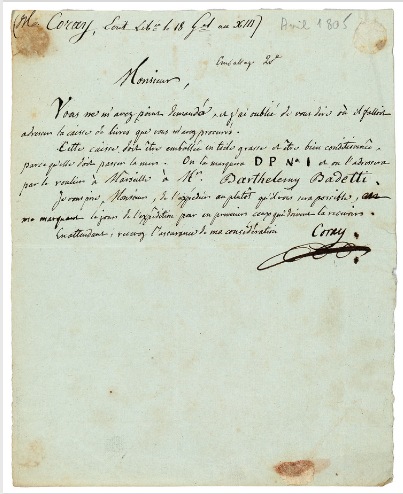 (Mr. Coray, Cont. Lib.re le 18 G.al an XIII)
Avril 1805
Emballage 20e
Monsieur,
Vous ne m'avez point demandé, et j'ai oublié de vous dire où il falloit
adresser la caisse de livres que vous m'avez procurés.
Cette caisse doit être emballée en toile grasse et être bien conditionnée,
parce qu'elle doit passer la mer. On la marquera D P N° 1 et on l'adressera
par le roulier à Marseille à Mr. Barthelemy Badetti.
Je vous prie, Monsieur, de l'expédier au plutôt qu'il vous sera possible, en
me marquant le jour de l'expédition par en prévenir ceux qui doivent la recevoir.
En attendant, recevez l'assurance de ma considération
Coray.